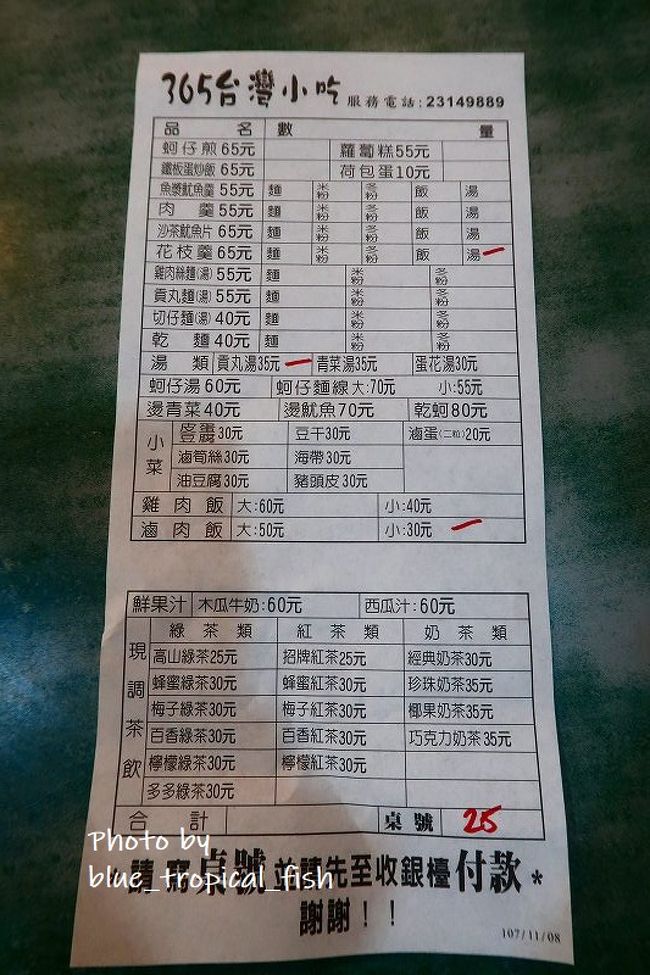 365台灣小吃 服務電話:23149889
品 名 數 量
蚵仔煎 65元 蘿蔔糕55元
鐵板蛋炒飯 65元 荷包蛋10元
魚漿魷魚羹 55元 麵 米粉 冬粉 飯 湯
肉 羹 55元 麵 米粉 冬粉 飯 湯
沙茶魷魚片 65元 麵 米粉 冬粉 飯 湯
花枝羹 65元 麵 米粉 冬粉 飯 湯
雞肉絲麵(湯) 55元 麵 米粉 冬粉
貢丸麵(湯) 55元 麵 米粉 冬粉
切仔麵(湯) 40元 麵 米粉 冬粉
乾 麵 40元 麵 米粉 冬粉
湯 類 貢丸湯35元 青菜湯35元 蛋花湯30元
蚵仔湯 60元 蚵仔麵線 大:70元 小:55元
燙青菜 40元 燙魷魚 70元 乾蚵 80元
小菜 30元 豆干30元 滷蛋(二粒)20元
滷筍絲30元 海帶30元
油豆腐30元 豬頭皮30元
雞 肉 飯 大:60元 小:40元
滷 肉 飯 大:50元 小:30元
鮮果汁 木瓜牛奶:60元 西瓜汁:60元
現調茶飲 綠 茶 類 紅 茶 類 奶 茶 類
高山綠茶25元 招牌紅茶25元 經典奶茶30元
蜂蜜綠茶30元 蜂蜜紅茶30元 珍珠奶茶35元
梅子綠茶30元 梅子紅茶30元 椰果奶茶35元
百香綠茶30元 百香紅茶30元 巧克力奶茶35元
檸檬綠茶30元 檸檬紅茶30元
多多綠茶30元
合 計 桌 號 25
Photo by
blue_tropical_fish
*請寫桌號並請先至收銀檯付款*
謝謝！！
107/11/08